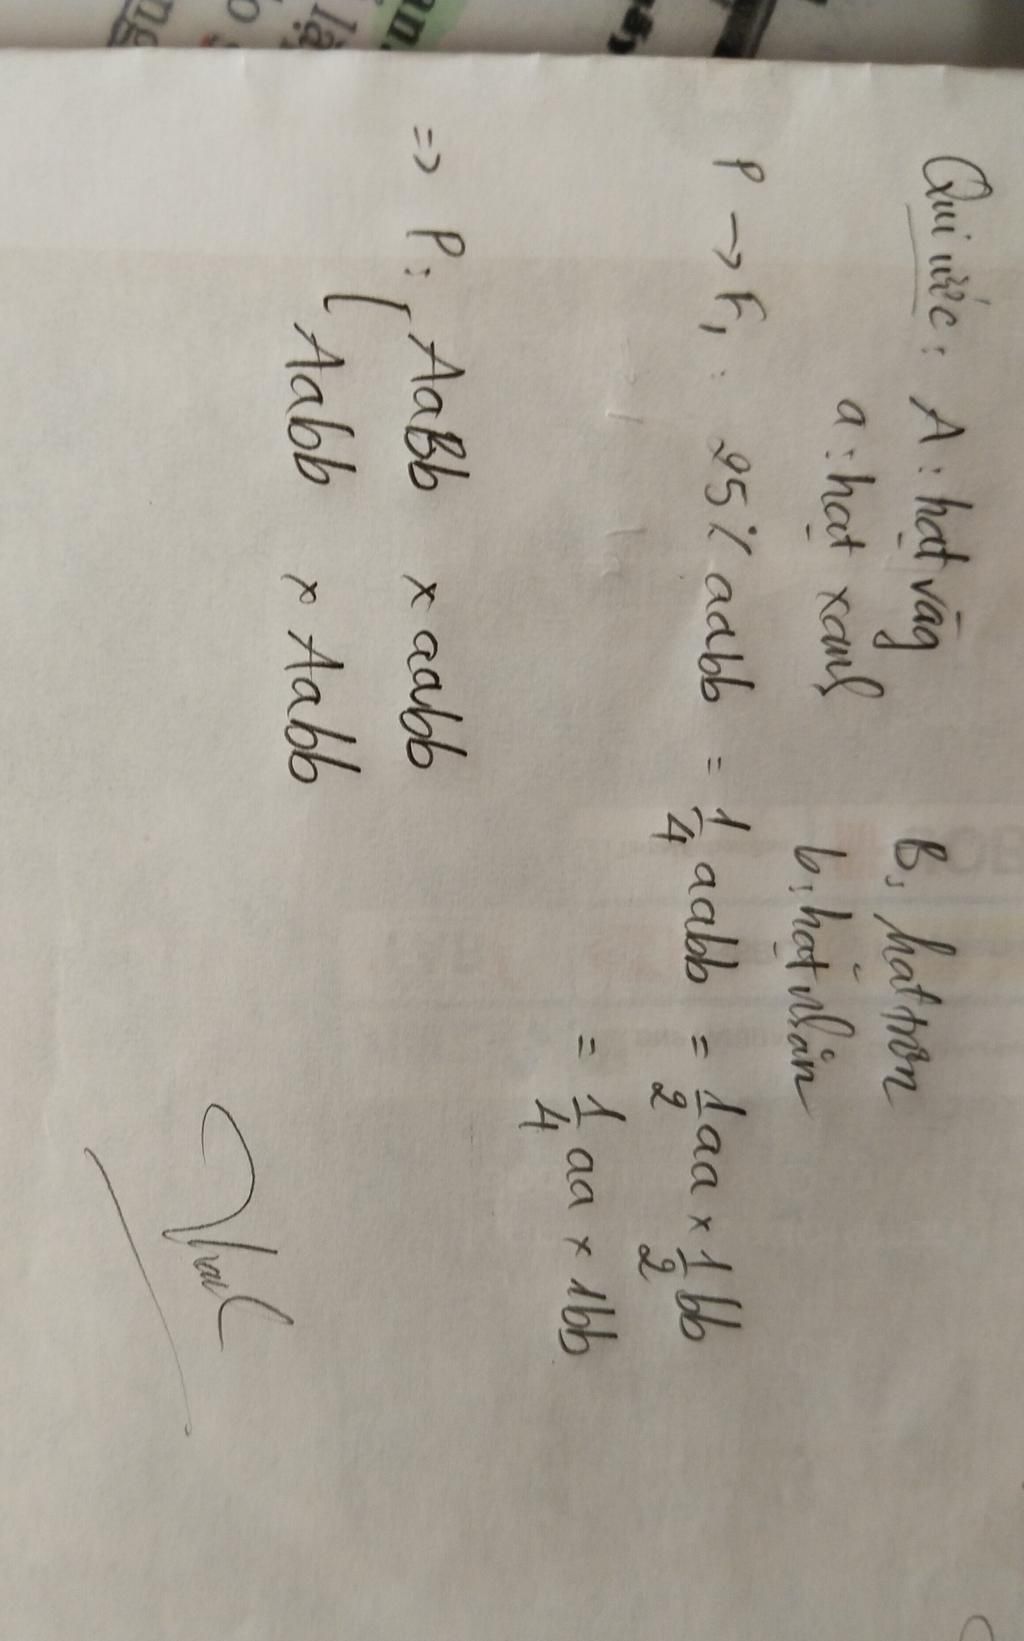 Qui ước: A: hạt vàng B: hạt trơn
a: hạt xanh b: hạt nhăn
P → F1: 25% aabb = 1/4 aabb = 1/2 aa × 1/2 bb
= 1/4 aa × 1bb
=> P: ( AaBb × aabb
Aabb × Aabb